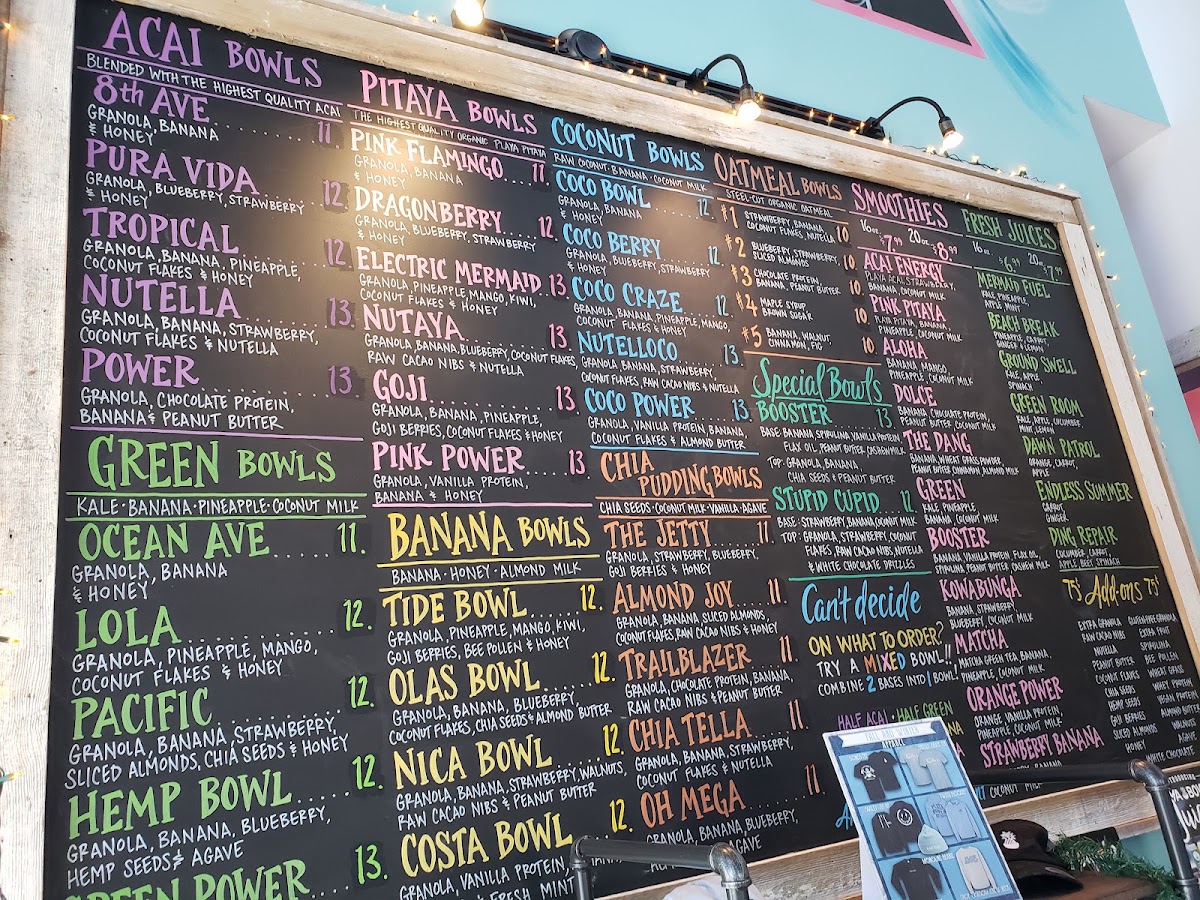 ACAI BOWLS
BLENDED WITH THE HIGHEST QUALITY ACAI
8th AVE 11.
GRANOLA, BANANA
& HONEY
PURA VIDA 12.
GRANOLA, BLUEBERRY, STRAWBERRY
& HONEY
TROPICAL 12.
GRANOLA, BANANA, PINEAPPLE,
COCONUT FLAKES & HONEY
NUTELLA 13.
GRANOLA, BANANA, STRAWBERRY,
COCONUT FLAKES & NUTELLA
POWER 13.
GRANOLA, CHOCOLATE PROTEIN,
BANANA & PEANUT BUTTER
GREEN BOWLS
KALE · BANANA · PINEAPPLE · COCONUT MILK
OCEAN AVE 11.
GRANOLA, BANANA
& HONEY
LOLA 12.
GRANOLA, PINEAPPLE, MANGO,
COCONUT FLAKES & HONEY
PACIFIC 12.
GRANOLA, BANANA, STRAWBERRY,
SLICED ALMONDS, CHIA SEEDS & HONEY
HEMP BOWL 12.
GRANOLA, BANANA, BLUEBERRY,
HEMP SEEDS & AGAVE
GREEN POWER 13.
PITAYA BOWLS
THE HIGHEST QUALITY ORGANIC PLAYA PITAYA
PINK FLAMINGO 11.
GRANOLA, BANANA
& HONEY
DRAGONBERRY 12.
GRANOLA, BLUEBERRY, STRAWBERRY
& HONEY
ELECTRIC MERMAID 13.
GRANOLA, PINEAPPLE, MANGO, KIWI,
COCONUT FLAKES & HONEY
NUTAYA 13.
GRANOLA, BANANA, BLUEBERRY, COCONUT FLAKES,
RAW CACAO NIBS & NUTELLA
GOJI 13.
GRANOLA, BANANA, PINEAPPLE,
GOJI BERRIES, COCONUT FLAKES & HONEY
PINK POWER 13.
GRANOLA, VANILLA PROTEIN,
BANANA & HONEY
BANANA BOWLS
BANANA · HONEY · ALMOND MILK
TIDE BOWL 12.
GRANOLA, PINEAPPLE, MANGO, KIWI,
GOJI BERRIES, BEE POLLEN & HONEY
OLAS BOWL 12.
GRANOLA, BANANA, BLUEBERRY,
COCONUT FLAKES, CHIA SEEDS & ALMOND BUTTER
NICA BOWL 12.
GRANOLA, BANANA, STRAWBERRY, WALNUTS,
RAW CACAO NIBS & PEANUT BUTTER
COSTA BOWL 12.
GRANOLA, VANILLA PROTEIN,
FRESH MINT
COCONUT BOWLS
RAW COCONUT · BANANA · COCONUT MILK
COCO BOWL 12.
GRANOLA, BANANA
& HONEY
COCO BERRY 12
GRANOLA, BLUEBERRY, STRAWBERRY
& HONEY
COCO CRAZE 12
GRANOLA, BANANA, PINEAPPLE, MANGO,
COCONUT FLAKES & HONEY
NUTELLOCO 13.
GRANOLA, BANANA, STRAWBERRY,
COCONUT FLAKES, RAW CACAO NIBS & NUTELLA
COCO POWER 13.
GRANOLA, VANILLA PROTEIN, BANANA,
COCONUT FLAKES & ALMOND BUTTER
CHIA
PUDDING BOWLS
CHIA SEEDS · COCONUT MILK · VANILLA · AGAVE
THE JETTY 11.
GRANOLA, STRAWBERRY, BLUEBERRY,
GOJI BERRIES & HONEY
ALMOND JOY 11.
GRANOLA, BANANA, SLICED ALMONDS,
COCONUT FLAKES, RAW CACAO NIBS & HONEY
TRAILBLAZER 11.
GRANOLA, CHOCOLATE PROTEIN, BANANA,
RAW CACAO NIBS & PEANUT BUTTER
CHIA TELLA 11.
GRANOLA, BANANA, STRAWBERRY,
COCONUT FLAKES & NUTELLA
OH MEGA 11
GRANOLA, BANANA, BLUEBERRY,
AGAVE
OATMEAL BOWLS
STEEL-CUT ORGANIC OATMEAL
#1 STRAWBERRY, BANANA, 10
COCONUT FLAKES, NUTELLA
#2 BLUEBERRY, STRAWBERRY, 10
SLICED ALMONDS
#3 CHOCOLATE PROTEIN, 10
BANANA, PEANUT BUTTER
#4 MAPLE SYRUP 10
BROWN SUGAR
#5 BANANA, WALNUT, 10
CINNAMON, FIG
Special Bowls
BOOSTER 13.
BASE: BANANA, SPIRULINA, VANILLA PROTEIN,
FLAX OIL, PEANUT BUTTER, CASHEW MILK
TOP: GRANOLA, BANANA,
CHIA SEEDS & PEANUT BUTTER
STUPID CUPID 12.
BASE: STRAWBERRY, BANANA, COCONUT MILK
TOP: GRANOLA, STRAWBERRY, COCONUT
FLAKES, RAW CACAO NIBS, NUTELLA
& WHITE CHOCOLATE DRIZZLES
Can't decide
ON WHAT TO ORDER?
TRY A MIXED BOWL!!
COMBINE 2 BASES INTO 1 BOWL!
HALF ACAI · HALF GREEN
SMOOTHIES
16oz. $7.99 20oz. $8.99
ACAI ENERGY
PLAYA ACAI, STRAWBERRY,
BANANA, COCONUT MILK
PINK PITAYA
PLAYA PITAYA, BANANA,
PINEAPPLE, COCONUT MILK
ALOHA
BANANA, MANGO,
PINEAPPLE, COCONUT MILK
DOLCE
BANANA, CHOCOLATE PROTEIN,
PEANUT BUTTER, COCONUT MILK
THE DANG
BANANA, WHEAT GRASS POWDER,
PEANUT BUTTER, CINNAMON, ALMOND MILK
GREEN
KALE, PINEAPPLE,
BANANA, COCONUT MILK
BOOSTER
BANANA, VANILLA PROTEIN, FLAX OIL,
SPIRULINA, PEANUT BUTTER, CASHEW MILK
KOWABUNGA
BANANA, STRAWBERRY,
BLUEBERRY, COCONUT MILK
MATCHA
MATCHA GREEN TEA, BANANA,
PINEAPPLE, COCONUT MILK
ORANGE POWER
ORANGE, VANILLA PROTEIN,
PINEAPPLE, COCONUT MILK
STRAWBERRY BANANA
FRESH JUICES
16oz. $6.99 20oz. $7.99
MERMAID FUEL
KALE, PINEAPPLE,
APPLE, MINT
BEACH BREAK
PINEAPPLE, CARROT,
GINGER & LEMON
GROUND SWELL
KALE, APPLE,
SPINACH
GREEN ROOM
KALE, APPLE, CUCUMBER,
MINT, LEMON
DAWN PATROL
ORANGE, CARROT,
APPLE
ENDLESS SUMMER
CARROT,
GINGER
DING REPAIR
CUCUMBER, CARROT,
APPLE, BEET, SPINACH
75¢ Add-ons 75¢
EXTRA GRANOLA
RAW CACAO NIBS
NUTELLA
PEANUT BUTTER
COCONUT FLAKES
CHIA SEEDS
HEMP SEEDS
GOJI BERRIES
SLICED ALMONDS
HONEY
GLUTEN FREE GRANOLA
EXTRA FRUIT
SPIRULINA
BEE POLLEN
WHEAT GRASS
WHEY PROTEIN
ALMOND BUTTER
WALNUTS
AGAVE
WHITE CHOCOLATE
APPAREL